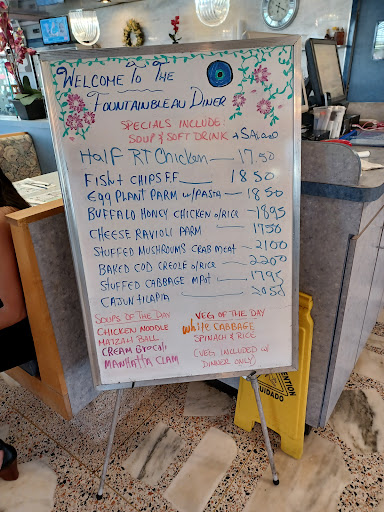 WELCOME TO THE
FOUNTAINBLEAU DINER
SPECIALS INCLUDE:
SOUP & SOFT DRINK + SALAD
Half RT Chicken — 17.50
FISH + CHIPS F.F 18 50
EGG PLANT PARM w/PASTA — 18 50
BUFFALO HONEY CHICKEN o/RICE - 18 95
CHEESE RAVIOLI PARM — 17 50
STUFFED MUSHROUMS CRAB MEAT - 21 00
BAKED COD CREOLE o/RICE — 22 00
STUFFED CABBAGE MPOT — 17 95
CAJUN TILAPIA — 20 50
SOUPS OF THE DAY
CHICKEN NOODLE
MATZAH BALL
CREAM BROCOLI
MANHATTA CLAM
VEG OF THE DAY
WHITE CABBAGE
SPINACH & RICE
(VEG INCLUDED w/
DINNER ONLY)
CUIDADO